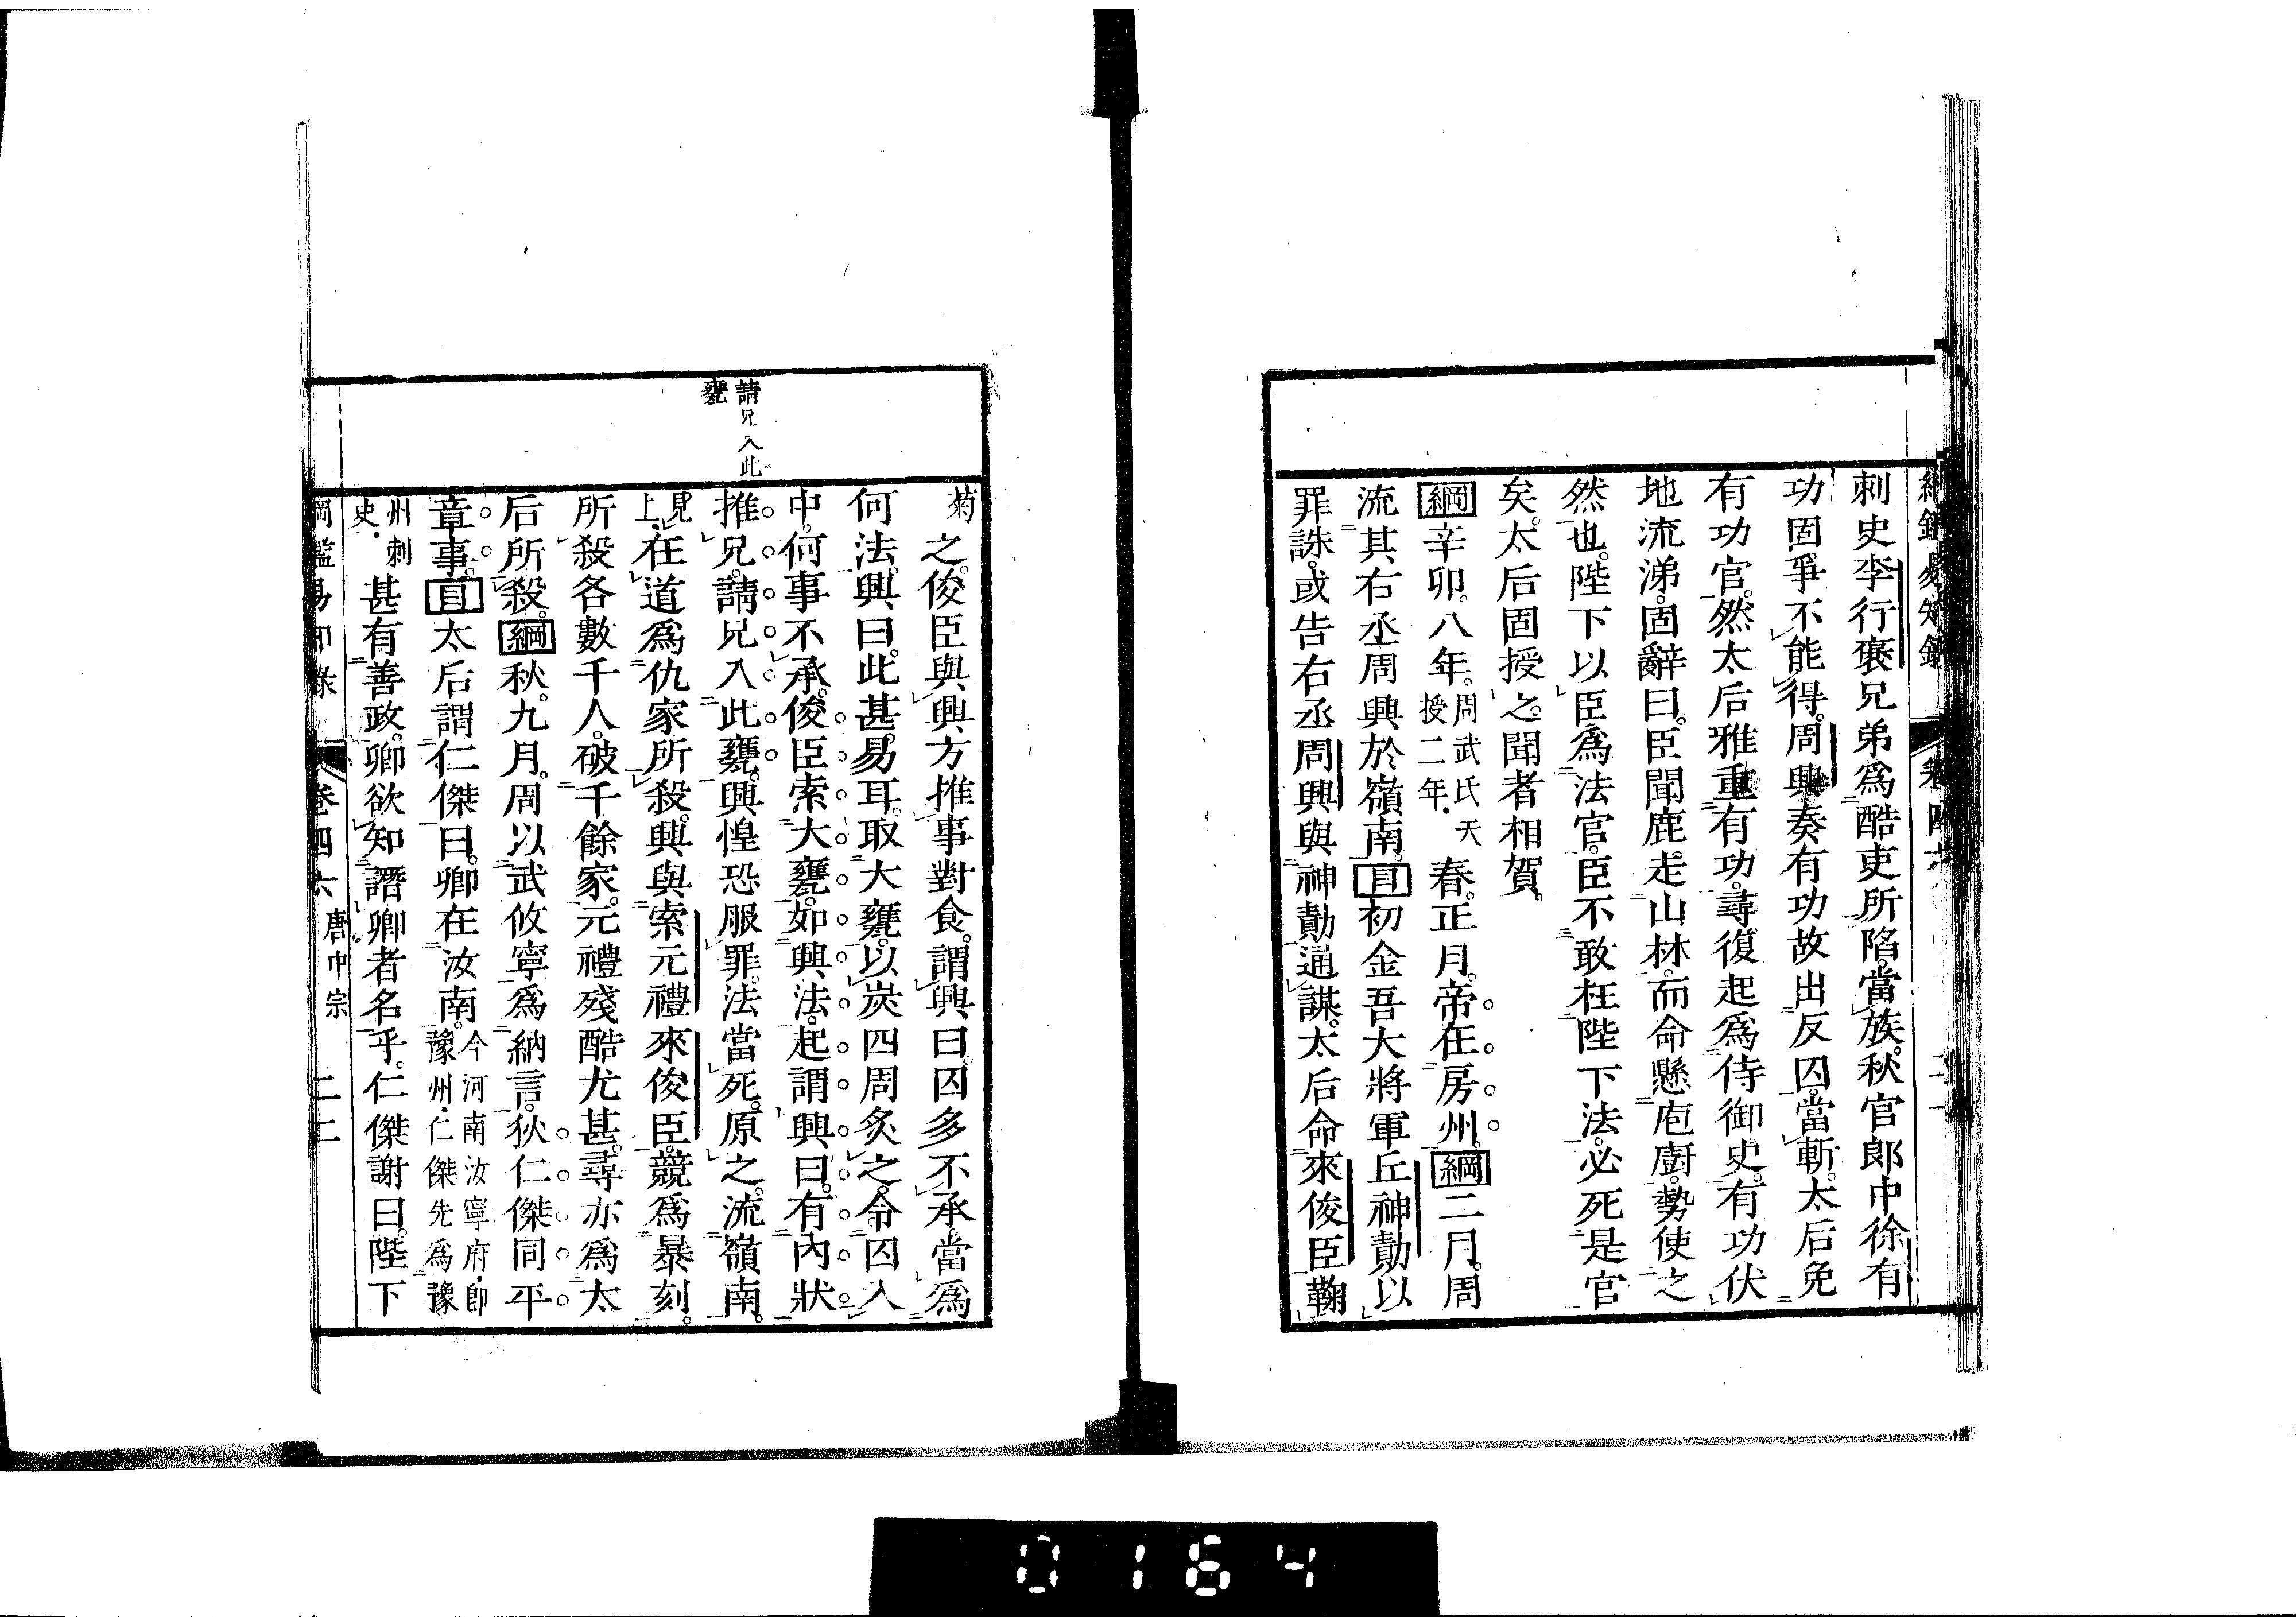 綱鑑易知錄 卷四六
刺史李行褒兄弟爲酷吏所陷。當族。秋官郎中徐有
功固爭。不能得。周興奏有功故出反囚。當斬。太后免
有功官。然太后雅重有功。尋復起爲侍御史。有功伏
地流涕。固辭曰。臣聞鹿走山林。而命懸庖廚。勢使之
然也。陛下以臣爲法官。臣不敢枉陛下法。必死是官
矣。太后固授之。聞者相賀。
綱辛卯。八年。周武氏天授二年。春。正月。帝在房州。綱二月。周
流其右丞周興於嶺南。目初金吾大將軍丘神勣以
罪誅。或告右丞周興與神勣通謀。太后命來俊臣鞫
菊之。俊臣與興方推事對食。謂興曰。囚多不承。當爲
何法。興曰。此甚易耳。取大甕。以炭四周炙之。令囚入
中。何事不承。俊臣索大甕。如興法。起謂興曰。有內狀
請兄入此
甕
推兄。請兄入此甕。興惶恐服罪。法當死。原之。流嶺南。
見上.在道爲仇家所殺。興與索元禮來俊臣。競爲暴刻。
所殺各數千人。破千餘家。元禮殘酷尤甚。尋亦爲太
后所殺。綱秋。九月。周以武攸寧爲納言。狄仁傑同平
章事。目太后謂仁傑曰。卿在汝南。今河南汝寧府.卽豫州.仁傑先爲豫
州刺史.甚有善政。卿欲知譖卿者名乎。仁傑謝曰。陛下
綱鑑易知錄 卷四六 唐中宗 二二
0164